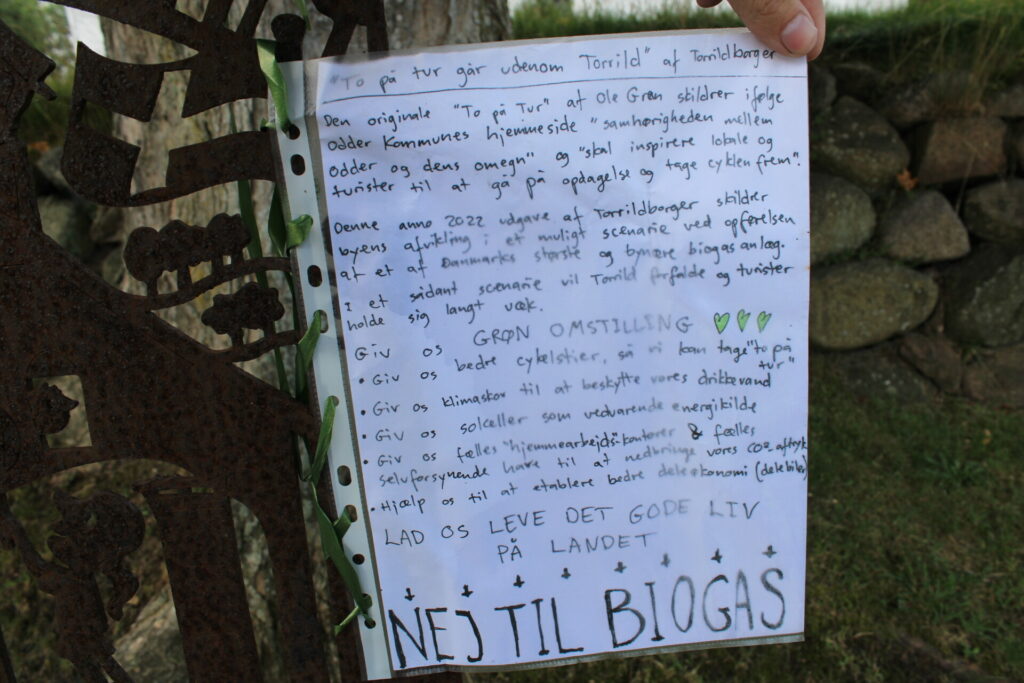 "To på tur går udenom Torrild" af Torrildborger
Den originale "To på Tur" af Ole Grøn skildrer ifølge
Odder Kommunes hjemmeside "samhørigheden mellem
Odder og dens omegn" og "skal inspirere lokale og
turister til at gå på opdagelse og tage cyklen frem".
Denne anno 2022 udgave af Torrildborger skildrer
byens afvikling i et muligt scenarie ved opførelsen
af et af Danmarks største og bynære biogasanlæg.
I et sådant scenarie vil Torrild forfalde og turister
holde sig langt væk.
Giv os GRØN OMSTILLING
• Giv os bedre cykelstier, så vi kan tage "to på
tur"
• Giv os klimaskov til at beskytte vores drikkevand
• Giv os solceller som vedvarende energikilde
• Giv os fælles "hjemmearbejds"-kontorer & fælles
selvforsynende have til at nedbringe vores CO2 aftryk
• Hjælp os til at etablere bedre deleøkonomi (delebiler)
LAD OS LEVE DET GODE LIV
PÅ LANDET
NEJ TIL BIOGAS